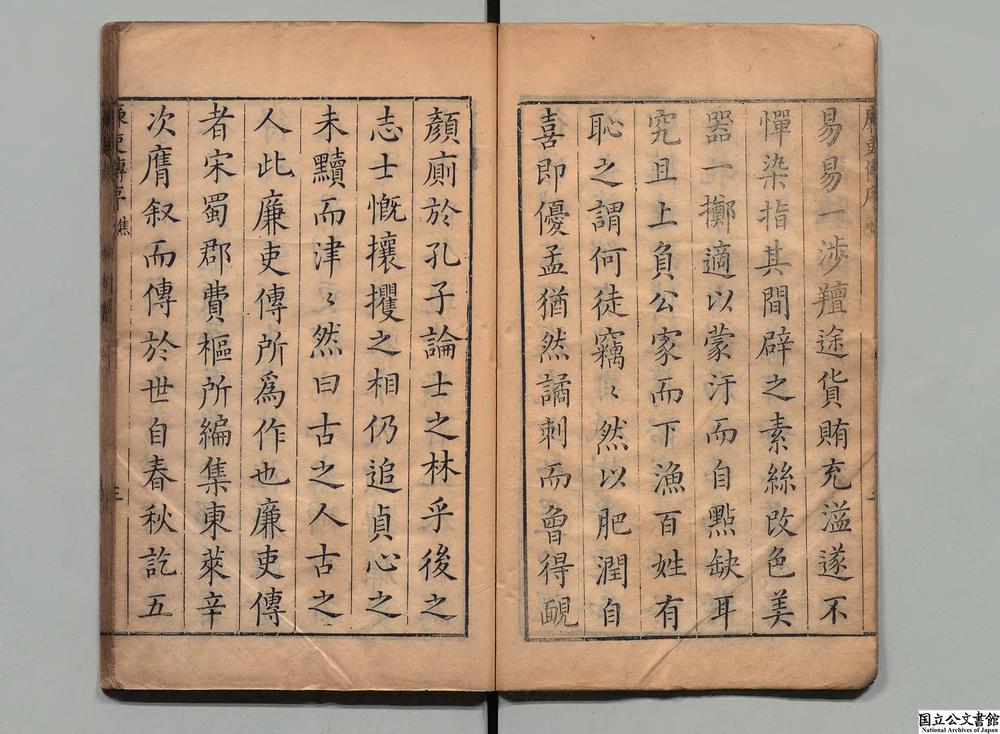 易易一涉羶途貨賄充溢遂不
憚染指其間辟之素絲改色美
器一擲適以蒙汙而自點缺耳
究且上負公家而下漁百姓有
恥之謂何徒竊〻然以肥潤自
喜即優孟猶然譎刺而曾得靦
顏廁於孔子論士之林乎後之
志士慨攘攫之相仍追貞心之
未黷而津〻然曰古之人古之
人此廉吏傳所爲作也廉吏傳
者宋蜀郡費樞所編集東萊辛
次膺叙而傳於世自春秋訖五
廉吏傳序 焦
三
国立公文書館
National Archives of Japan